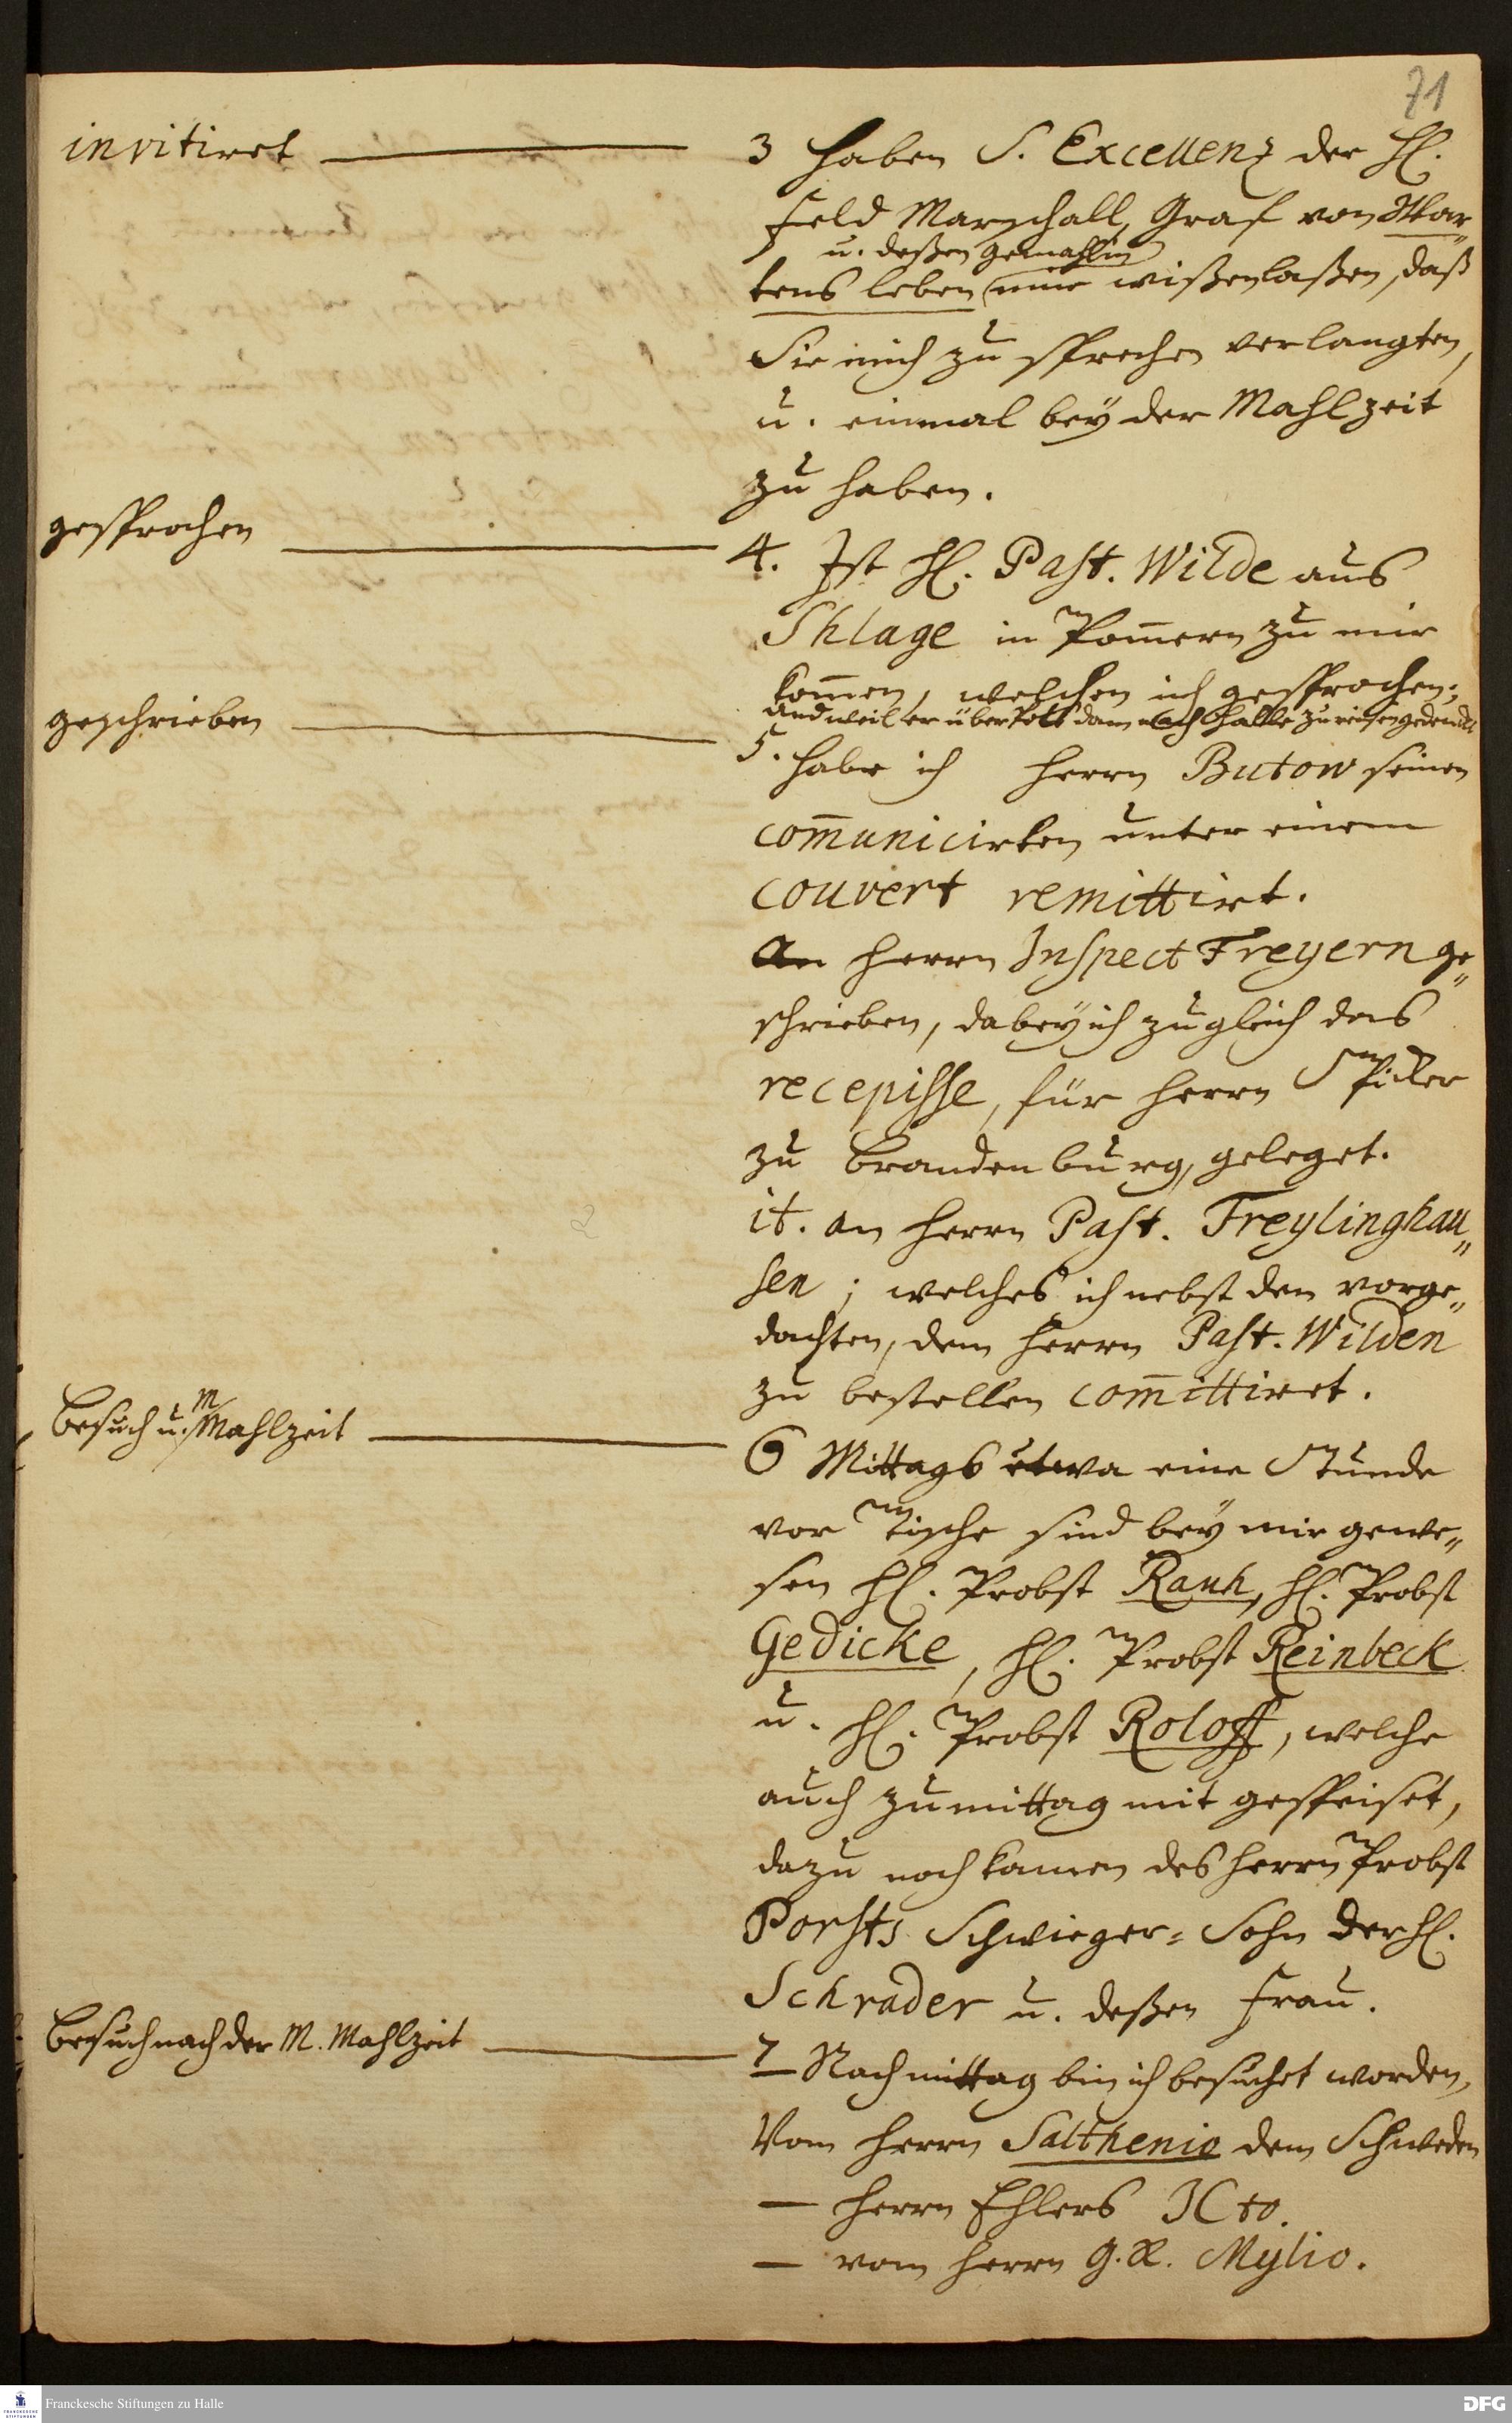 71
invitiret
3 haben S. Excellenz der H.
Feld Marschall, Graf von War„
u. deßen Gemahlin
tens leben mir wißen laßen, daß
Sie mich zu sprechen verlangten,
u. einmal bey der Mahlzeit
zu haben.
gesprochen
4. Ist H. Past. Wilde aus
Shlage in Pom̄ern zu mir
kom̄en, welchen ich gesprochen;
und weil er über Potsdam nach Halle zu reisen gedenckt
geschrieben
5. habe ich Herrn Butow seinen
com̄unicirten unter einem
couvert remittirt.
An Herrn Inspect Freyern ge„
schrieben, dabey ich zugleich das
recepisse, für Herrn Spicker
zu Brandenburg, geleget.
it. an Herrn Past. Freylinghau„
sen; welches ich nebst den vorge„
dachten, dem Herrn Past. Wilden
zu bestellen com̄ittiret.
Besuch u. M Mahlzeit
6 Mittags etwa eine Stunde
vor Tische sind bey mir gewe„
sen H. Probst Rauh, H. Probst
Gedicke, H. Probst Reinbeck
u. H. Probst Roloff, welche
auch zu mittag mit gespeiset,
dazu noch kamen des Herrn Probst
Porsts Schwieger= Sohn der H.
Schrader u. deßen Frau.
Besuch nach der M. Mahlzeit
7 Nachmittag bin ich besuchet worden,
Vom Herrn Salthenio dem Schweden
— Herrn Ehlers JCto.
— vom Herrn G. R. Mylio.
Franckesche Stiftungen zu Halle
DFG